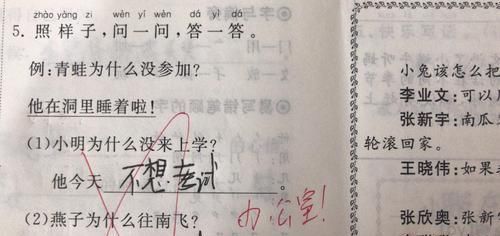 zhào yàng zi wèn yí wèn dá yì dá
5. 照样子，问一问，答一答。
例：青蛙为什么没参加？
他在洞里睡着啦！
(1)小明为什么没来上学？
他今天 不想考试 。
(2)燕子为什么往南飞？
办公室！
小兔该怎么把
李业文：可以
张新宇：南瓜
轮滚回家。
王晓伟：如果
张欣奥：张新